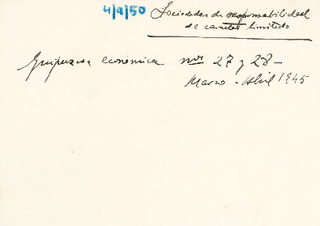 4/9/50
Sociedades de responsabilidad
de carácter limitado
Guipuzcoa económica nos 27 y 28 -
Marzo - Abril 1945